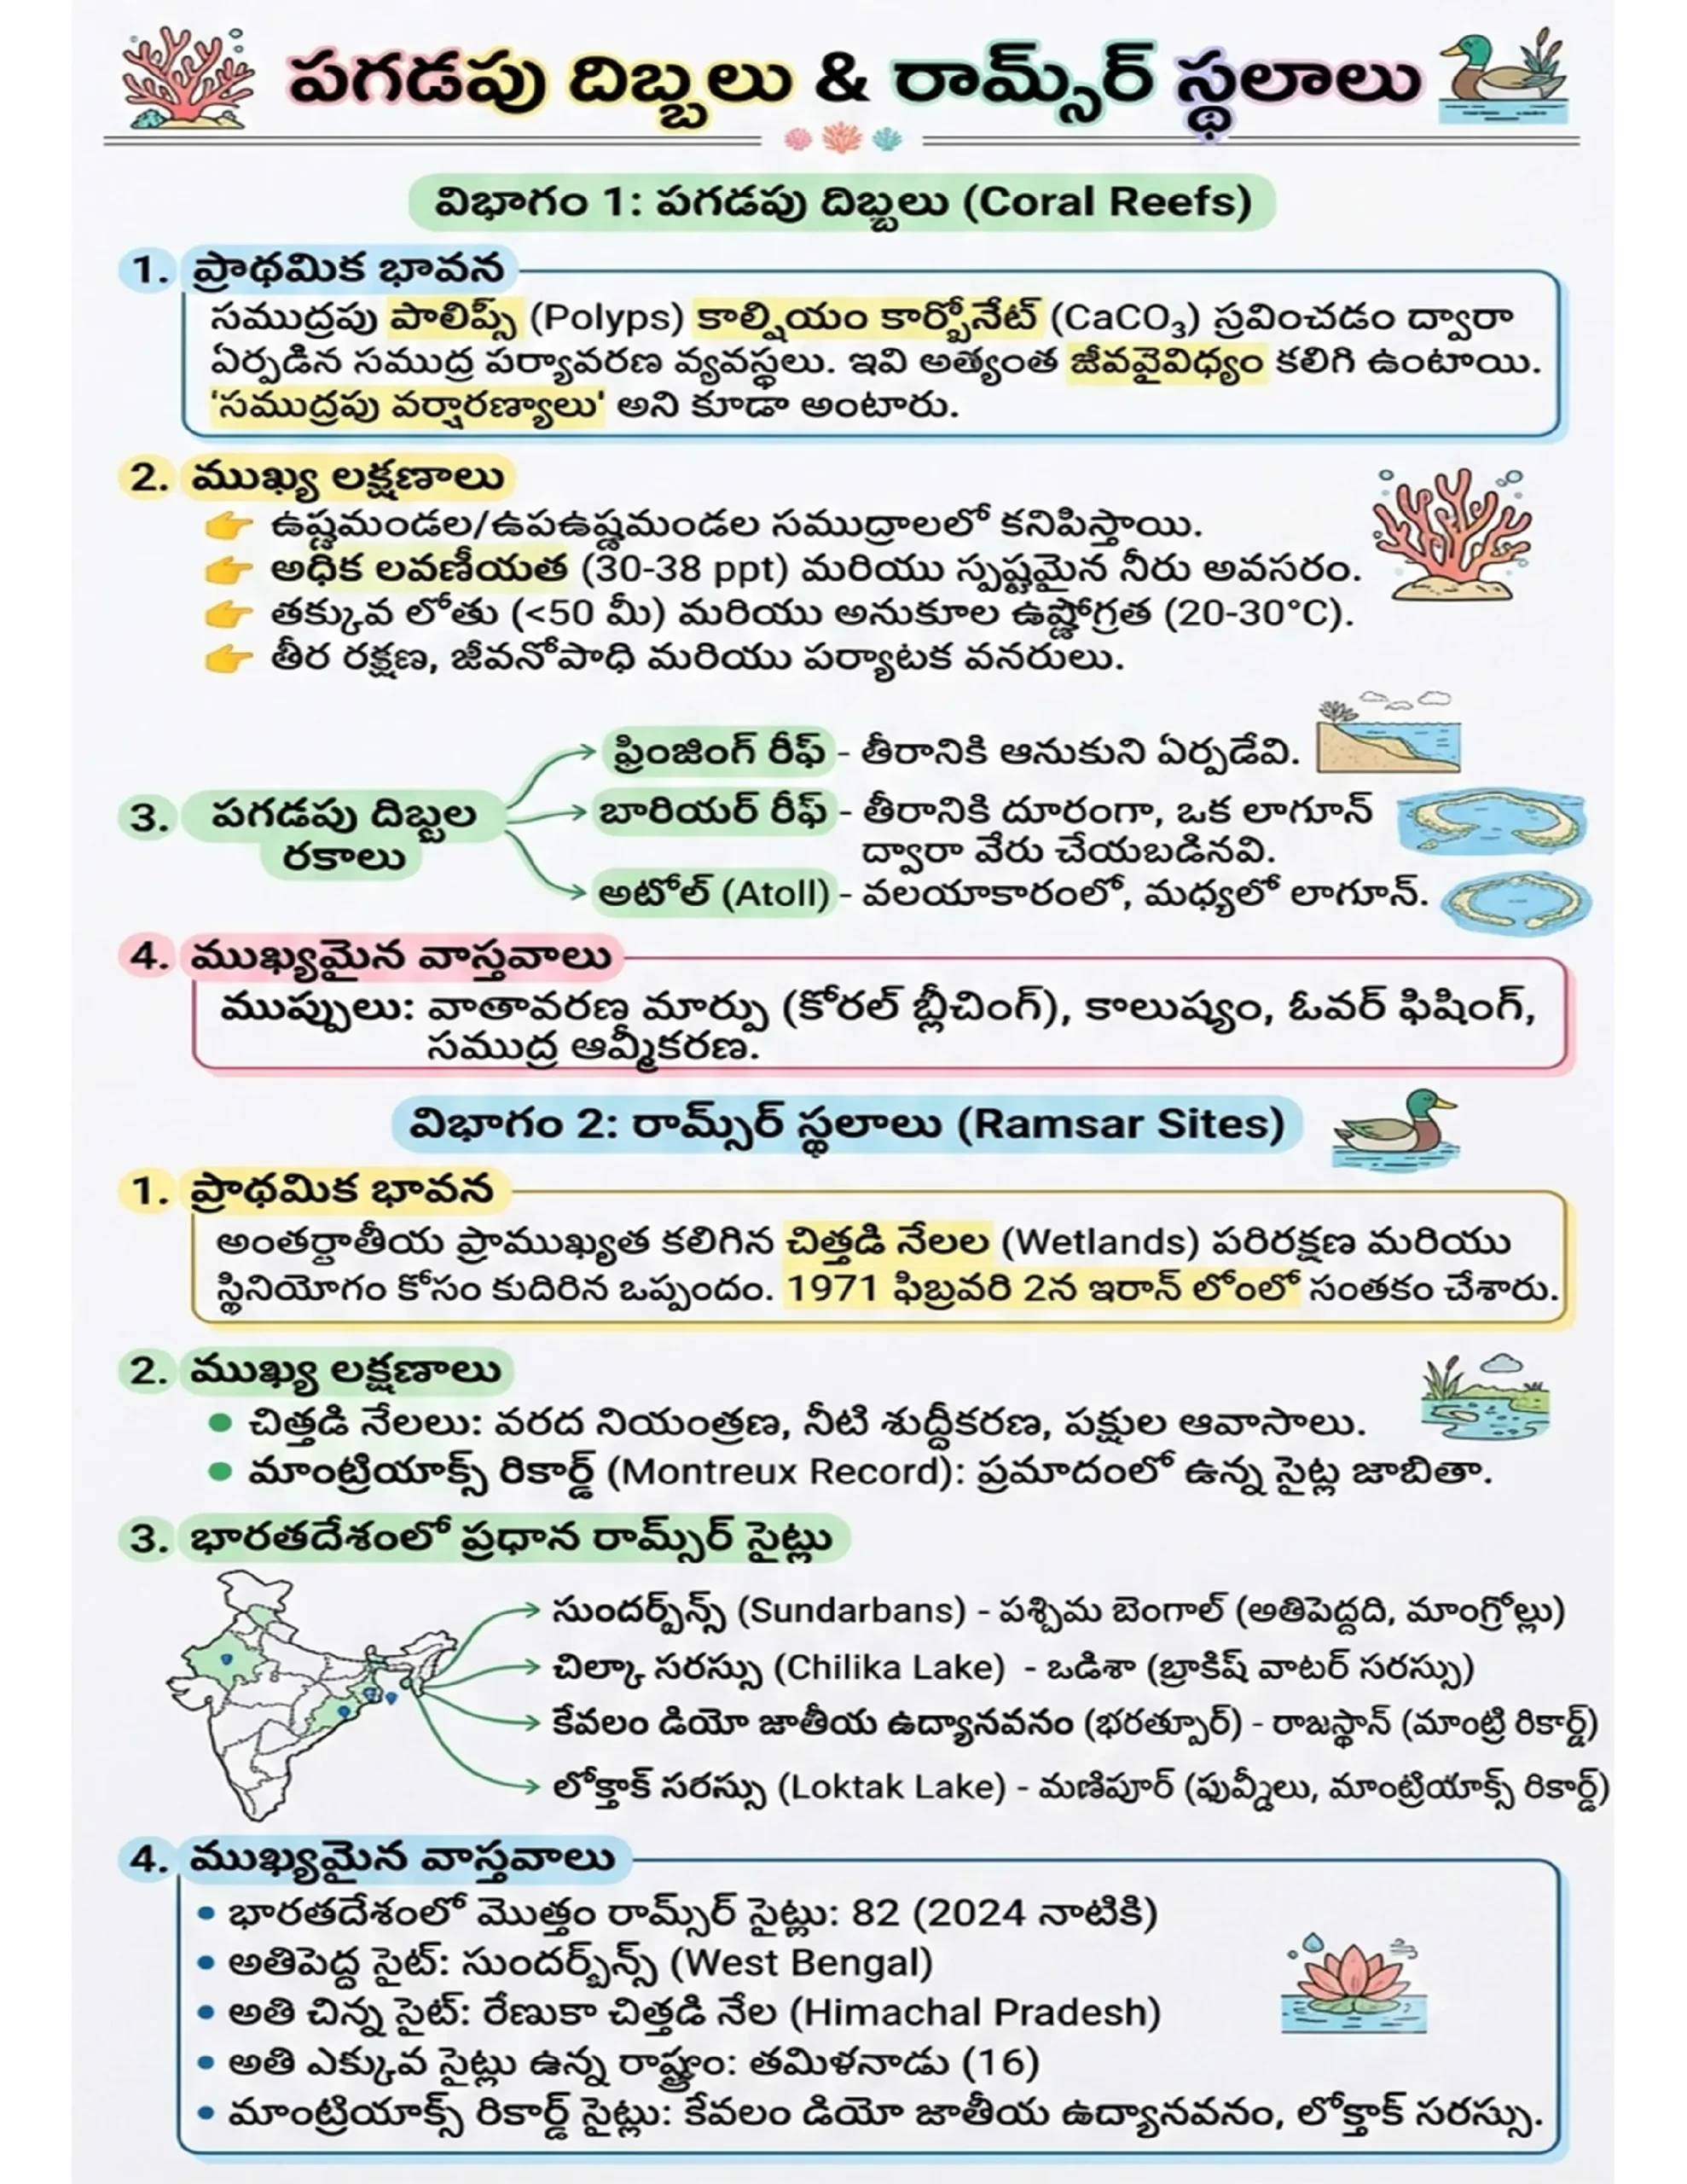 పగడపు దిబ్బలు & రామ్సర్ స్థలాలు
విభాగం 1: పగడపు దిబ్బలు (Coral Reefs)
1. ప్రాథమిక భావన
సముద్రపు పాలిప్స్ (Polyps) కాల్షియం కార్బోనేట్ (CaCO₃) స్రవించడం ద్వారా
ఏర్పడిన సముద్ర పర్యావరణ వ్యవస్థలు. ఇవి అత్యంత జీవవైవిధ్యం కలిగి ఉంటాయి.
'సముద్రపు వర్షారణ్యాలు' అని కూడా అంటారు.
2. ముఖ్య లక్షణాలు
👉 ఉష్ణమండల/ఉపఉష్ణమండల సముద్రాలలో కనిపిస్తాయి.
👉 అధిక లవణీయత (30-38 ppt) మరియు స్పష్టమైన నీరు అవసరం.
👉 తక్కువ లోతు (<50 మీ) మరియు అనుకూల ఉష్ణోగ్రత (20-30°C).
👉 తీర రక్షణ, జీవనోపాధి మరియు పర్యాటక వనరులు.
3. పగడపు దిబ్బల
రకాలు
ఫ్రింజింగ్ రీఫ్ - తీరానికి ఆనుకుని ఏర్పడేవి.
బారియర్ రీఫ్ - తీరానికి దూరంగా, ఒక లాగూన్
ద్వారా వేరు చేయబడినవి.
అటోల్ (Atoll) - వలయాకారంలో, మధ్యలో లాగూన్.
4. ముఖ్యమైన వాస్తవాలు
ముప్పులు: వాతావరణ మార్పు (కోరల్ బ్లీచింగ్), కాలుష్యం, ఓవర్ ఫిషింగ్,
సముద్ర ఆమ్మీకరణ.
విభాగం 2: రామ్సర్ స్థలాలు (Ramsar Sites)
1. ప్రాథమిక భావన
అంతర్జాతీయ ప్రాముఖ్యత కలిగిన చిత్తడి నేలల (Wetlands) పరిరక్షణ మరియు
స్థినియోగం కోసం కుదిరిన ఒప్పందం. 1971 ఫిబ్రవరి 2న ఇరాన్ లోంలో సంతకం చేశారు.
2. ముఖ్య లక్షణాలు
• చిత్తడి నేలలు: వరద నియంత్రణ, నీటి శుద్ధీకరణ, పక్షుల ఆవాసాలు.
• మాంట్రియాక్స్ రికార్డ్ (Montreux Record): ప్రమాదంలో ఉన్న సైట్ల జాబితా.
3. భారతదేశంలో ప్రధాన రామ్సర్ సైట్లు
సుందర్బన్స్ (Sundarbans) - పశ్చిమ బెంగాల్ (అతిపెద్దది, మాంగ్రోల్లు)
చిల్కా సరస్సు (Chilika Lake) - ఒడిశా (బ్రాకిష్ వాటర్ సరస్సు)
కేవలం డియో జాతీయ ఉద్యానవనం (భరత్పూర్) - రాజస్థాన్ (మాంట్రి రికార్డ్)
లోక్తాక్ సరస్సు (Loktak Lake) - మణిపూర్ (ఫువ్డీలు, మాంట్రియాక్స్ రికార్డ్)
4. ముఖ్యమైన వాస్తవాలు
• భారతదేశంలో మొత్తం రామ్సర్ సైట్లు: 82 (2024 నాటికి)
• అతిపెద్ద సైట్: సుందర్బన్స్ (West Bengal)
• అతి చిన్న సైట్: రేణుకా చిత్తడి నేల (Himachal Pradesh)
• అతి ఎక్కువ సైట్లు ఉన్న రాష్ట్రం: తమిళనాడు (16)
• మాంట్రియాక్స్ రికార్డ్ సైట్లు: కేవలం డియో జాతీయ ఉద్యానవనం, లోక్తాక్ సరస్సు.